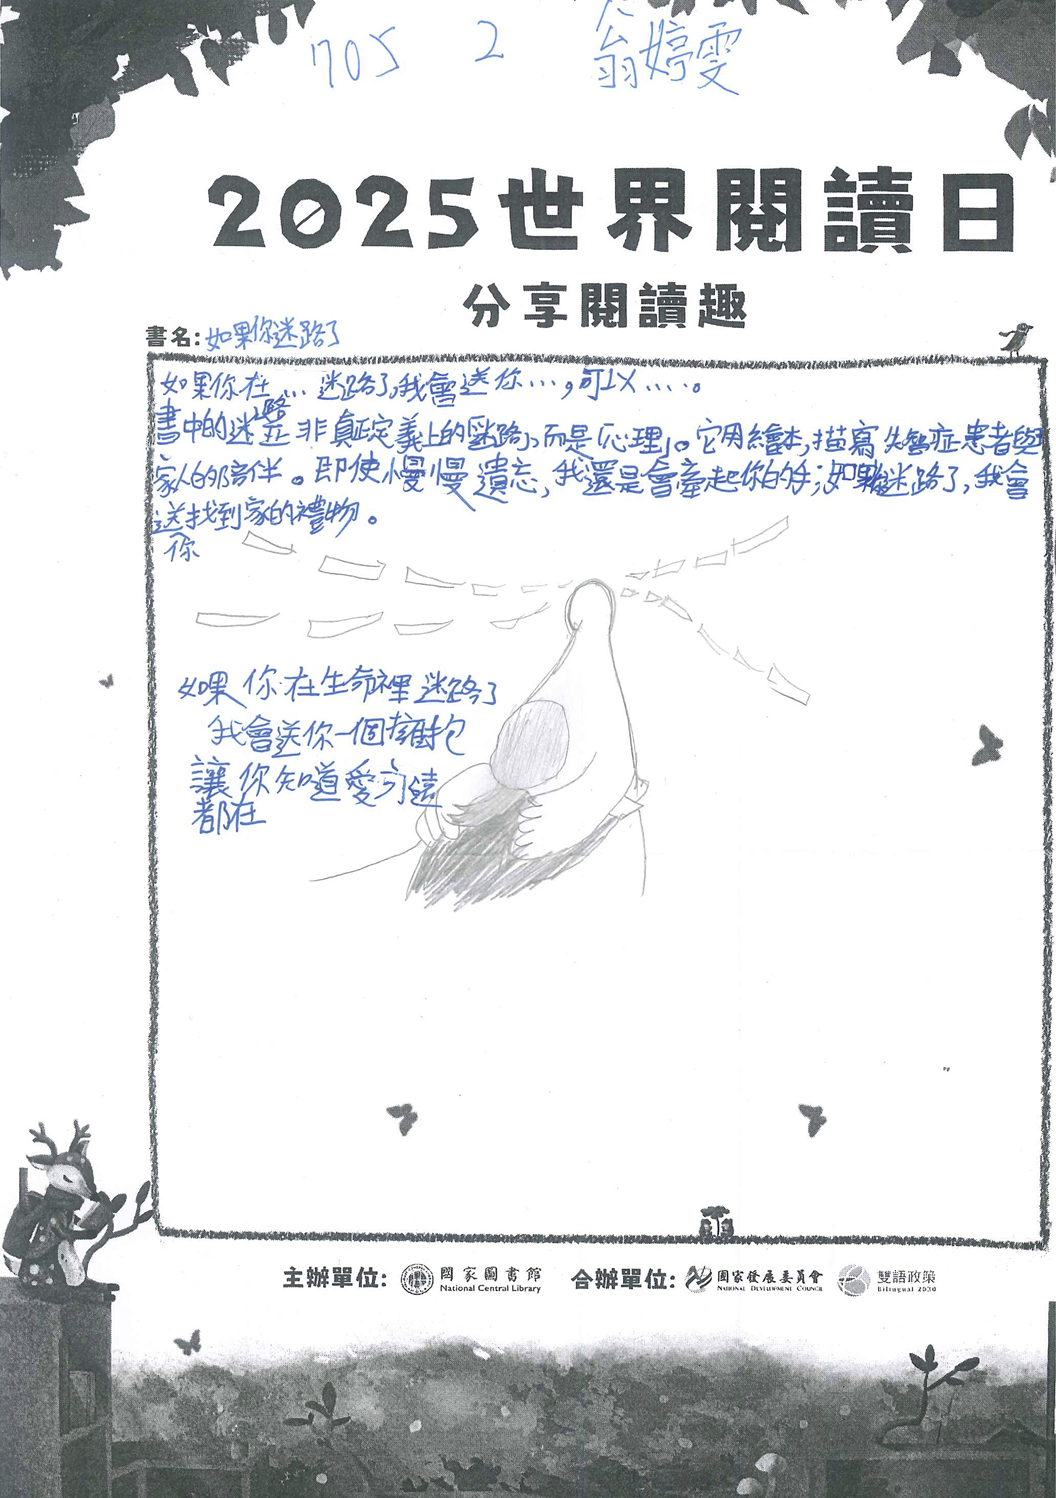 705 2 翁婷雯
2025世界閱讀日
分享閱讀趣
書名:如果你迷路了
如果你在…迷路了,我會送你…,可以…。
書中的迷路並非真正定義上的「迷路」,而是「心理」。它用繪本,描寫失智症患者與
家人的陪伴。即使慢慢遺忘,我還是會牽起你的手;如果迷路了,我會
送你找到家的禮物。
如果你在生命裡迷路了
我會送你一個擁抱
讓你知道愛永遠
都在
主辦單位: 國家圖書館 National Central Library 合辦單位: 國家發展委員會 National Development Council 雙語政策 Bilingual 2030